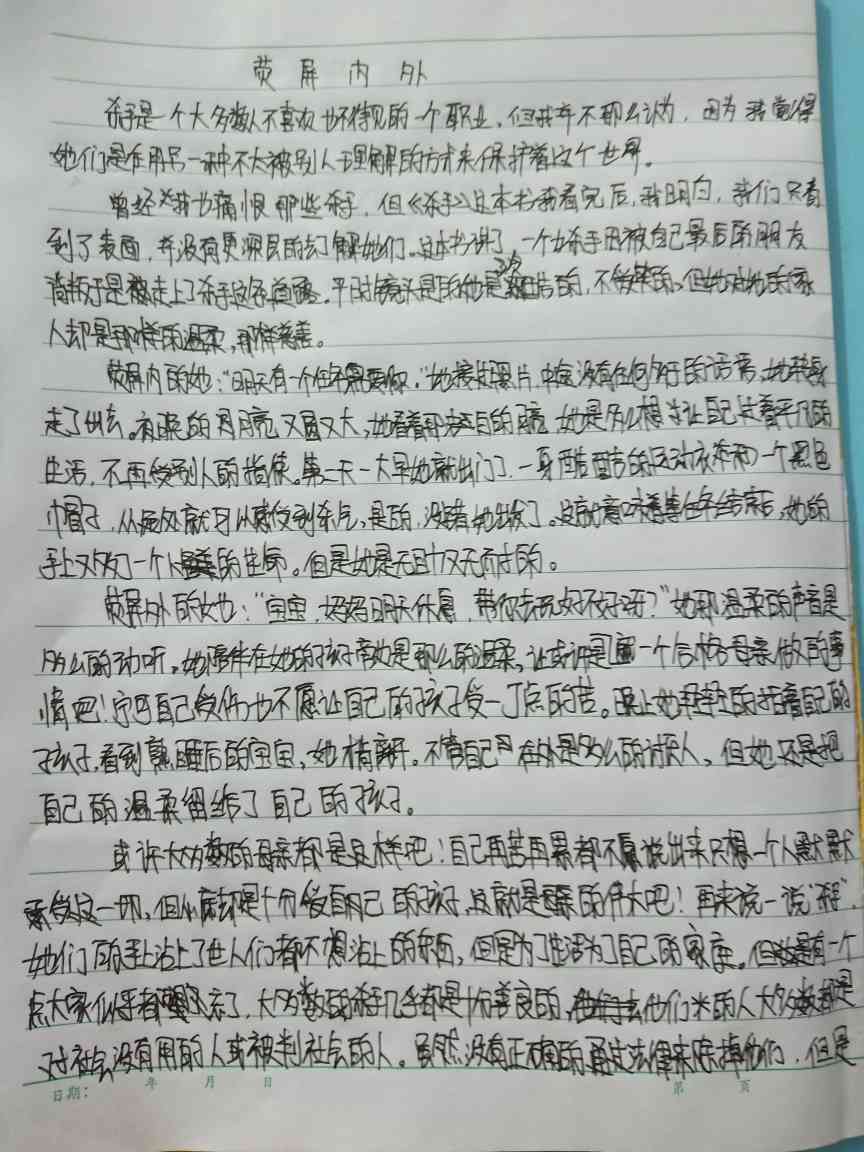 荧屏内外
杀手是一个大多数人不喜欢也不待见的一个职业,但我并不那么认为,因为我觉得
她们是在用另一种不太被别人理解的方式来保护着这个世界。
曾经我也痛恨那些杀手,但《杀手》这本书我看完后,我明白,我们只看
到了表面,并没有更深层的去了解她们。这本书讲了,一个女杀手因被自己最后的朋友
背叛于是走上了杀手这条道路。平时镜头是的她是的,不微笑的,但她对她的家
人却是那样的温柔,那样慈善。
荧屏内的她:“明天有一个任务需要你。”她接过照片,中途没有任何多于的话语,她
走了出去。夜晚的月亮又圆又大,她看着那的月亮,她是多么想让自己过着平凡的
生活,不再受别人的指使。第二天一大早她就出门了,一身酷酷的运动衣和一个黑色
巾冒子,从远处就可以感受到杀气,是的,没错她出发了。这就意味着等任务结束后,她的
手上又多了一个人的生命。但是她是无时又无刻的。
荧屏外的她:“宝宝,妈妈明天休息,带你去玩好不好呀?”她那温柔的声音是
多么的动听。她陪伴在她的孩子旁边是那么的温柔,这或许是一个合格母亲做的事
情吧!宁可自己受伤也不愿让自己的孩子受一丁点的苦。晚上她轻轻的抱着自己的
孩子,看到熟睡后的宝宝,她悄悄离开。不管自己在外是多么的讨厌人,但她还是把
自己的温柔留给了自己的孩子。
或许大多数的母亲都是这样吧!自己再苦再累都不愿说出来只想一个人默默
承受这一切,但心底却是十分爱自己的孩子,这就是母亲的伟大吧!再来说一说“杀手”,
她们的手上沾上了世人们都不想沾上的东西,但是为了生活为了自己的家庭。但是有一个
点大家似乎都忘了,大多数的杀手几乎都是十分善良的,他们杀的人大多数都是
对社会没有用的人或被判社会的人。虽然没有正确的通过法律来除掉他们,但是
日期: 年 月 日 第 页